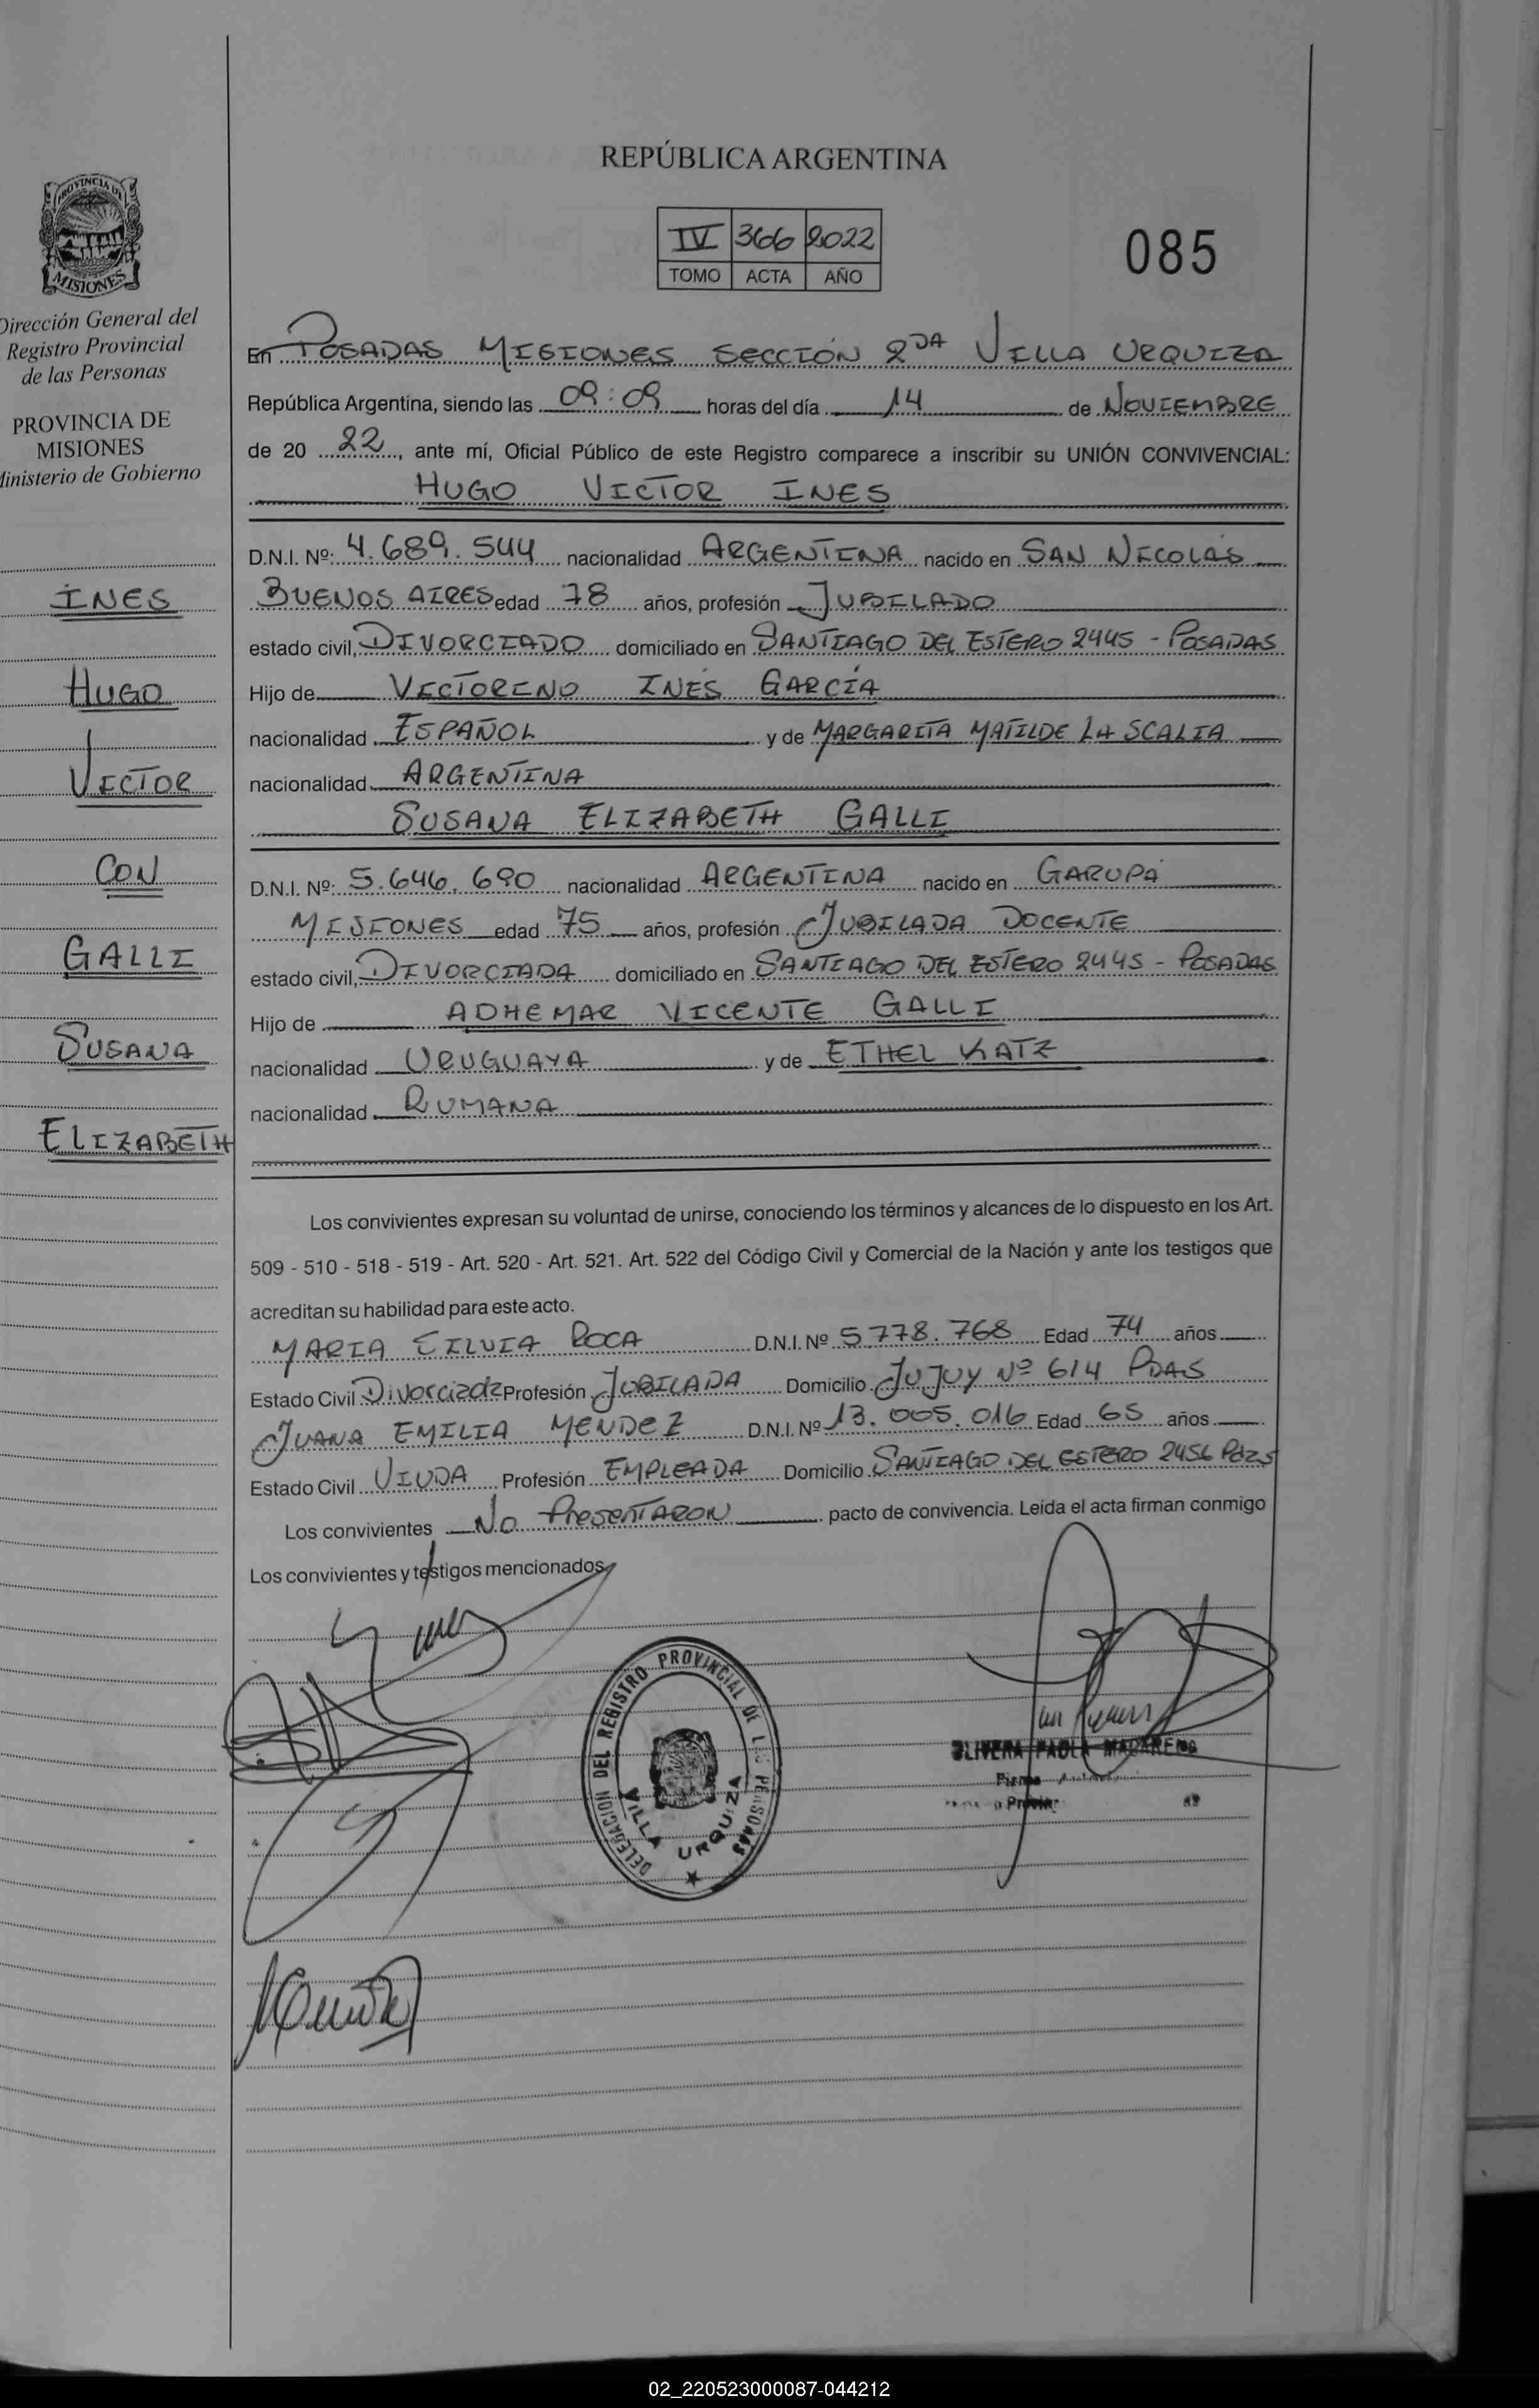 REPÚBLICA ARGENTINA
IV 366 2022
TOMO ACTA AÑO
085
PROVINCIA DE
MISIONES
Dirección General del
Registro Provincial
de las Personas
PROVINCIA DE
MISIONES
Ministerio de Gobierno
INES
HUGO
VICTOR
CON
GALLI
SUSANA
ELIZABETH
En POSADAS MISIONES SECCIÓN 2DA VILLA URQUIZA
República Argentina, siendo las 09:09 horas del día 14 de NOVIEMBRE
de 20 22, ante mí, Oficial Público de este Registro comparece a inscribir su UNIÓN CONVIVENCIAL:
HUGO VICTOR INES
D.N.I. Nº: 4.689.544 nacionalidad ARGENTINA nacido en SAN NICOLÁS
BUENOS AIRES edad 78 años, profesión JUBILADO
estado civil, DIVORCIADO domiciliado en SANTIAGO DEL ESTERO 2445 - POSADAS
Hijo de VICTORINO INES GARCÍA
nacionalidad ESPAÑOL y de MARGARITA MATILDE LA SCALIA
nacionalidad ARGENTINA
SUSANA ELIZABETH GALLI
D.N.I. Nº: 5.646.690 nacionalidad ARGENTINA nacido en GARUPÁ
MISIONES edad 75 años, profesión JUBILADA DOCENTE
estado civil, DIVORCIADA domiciliado en SANTIAGO DEL ESTERO 2445 - POSADAS
Hijo de ADHEMAR VICENTE GALLI
nacionalidad URUGUAYA y de ETHEL KATZ
nacionalidad RUMANA
Los convivientes expresan su voluntad de unirse, conociendo los términos y alcances de lo dispuesto en los Art.
509 - 510 - 518 - 519 - Art. 520 - Art. 521. Art. 522 del Código Civil y Comercial de la Nación y ante los testigos que
acreditan su habilidad para este acto.
MARIA SILVIA ROCA D.N.I. Nº 5.778.768 Edad 74 años
Estado Civil Divorciada Profesión JUBILADA Domicilio JUJUY Nº 614 PDAS
JUANA EMILIA MENDEZ D.N.I. Nº 13.005.016 Edad 65 años
Estado Civil VIUDA Profesión EMPLEADA Domicilio SANTIAGO DEL ESTERO 2456 Pdas
Los convivientes No PresenTARON pacto de convivencia. Leída el acta firman conmigo
Los convivientes y testigos mencionados
DELEGACION DEL REGISTRO PROVINCIAL DE LAS PERSONAS
VILLA URQUIZA
OLIVERA PAOLA MACARENA
Firma
02_220523000087-044212